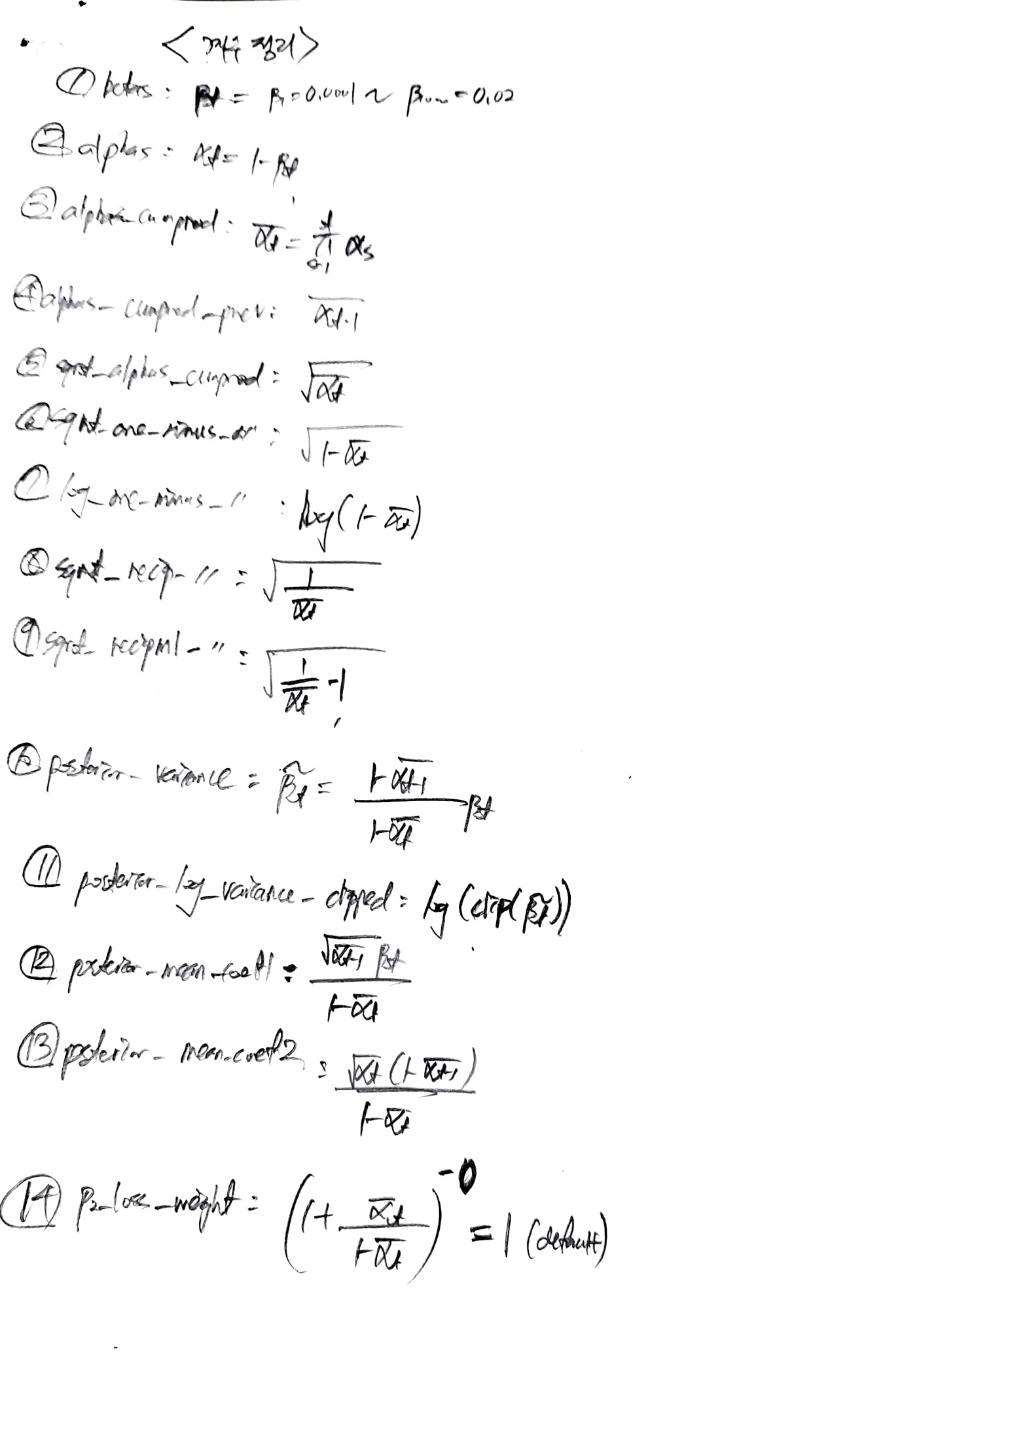 < 정리>
① betas : βt = β1=0.0001 ~ β1000=0.02
② alphas : αt = 1-βt
③ alphas_cumprod : ᾱt = ∏(s=1→t) αs
④ alphas_cumprod_prev : ᾱt-1
⑤ sqrt_alphas_cumprod : √ᾱt
⑥ sqrt_one_minus_〃 : √(1-ᾱt)
⑦ log_one_minus_〃 : log(1-ᾱt)
⑧ sqrt_recip_〃 : √(1/ᾱt)
⑨ sqrt_recipm1_〃 : √(1/ᾱt -1)
⑩ posterior_variance : β̃t = (1-ᾱt-1)/(1-ᾱt) βt
⑪ posterior_log_variance_clipped : log(clip(β̃t))
⑫ posterior_mean_coef1 : √ᾱt-1 βt / (1-ᾱt)
⑬ posterior_mean_coef2 : √αt (1-ᾱt-1) / (1-ᾱt)
⑭ p2_loss_weight : (1+ ᾱt/(1-ᾱt))^-0 = 1 (default)